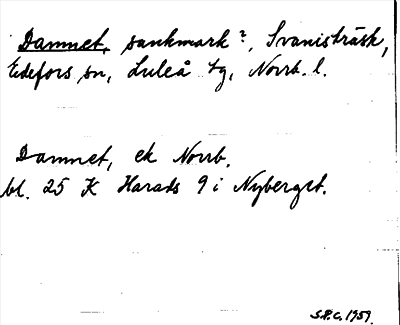 Damnet, sankmark?, Svanisträsk,
Edefors sn, Luleå tg, Norrb. l.
Damnet, ek Norrb.
bl. 25 K Harads 9 i Nyberget.
S.P.C. 1959.